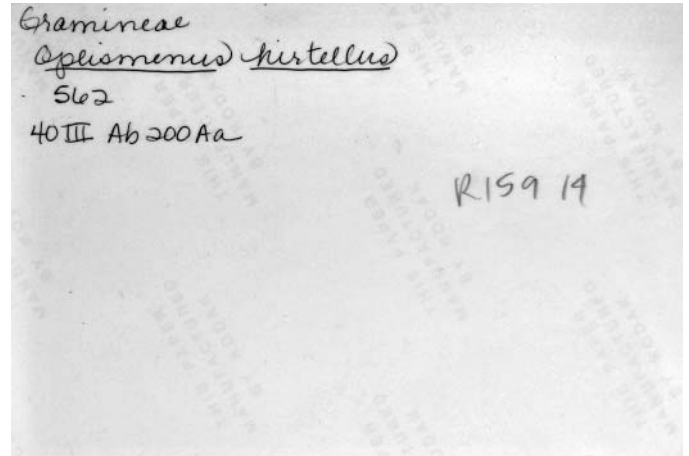 Gramineae
Oplismenus hirtellus
562
40 III Ab 200 Aa
R159 19
THIS PAPER
MANUFACTURED
BY KODAK